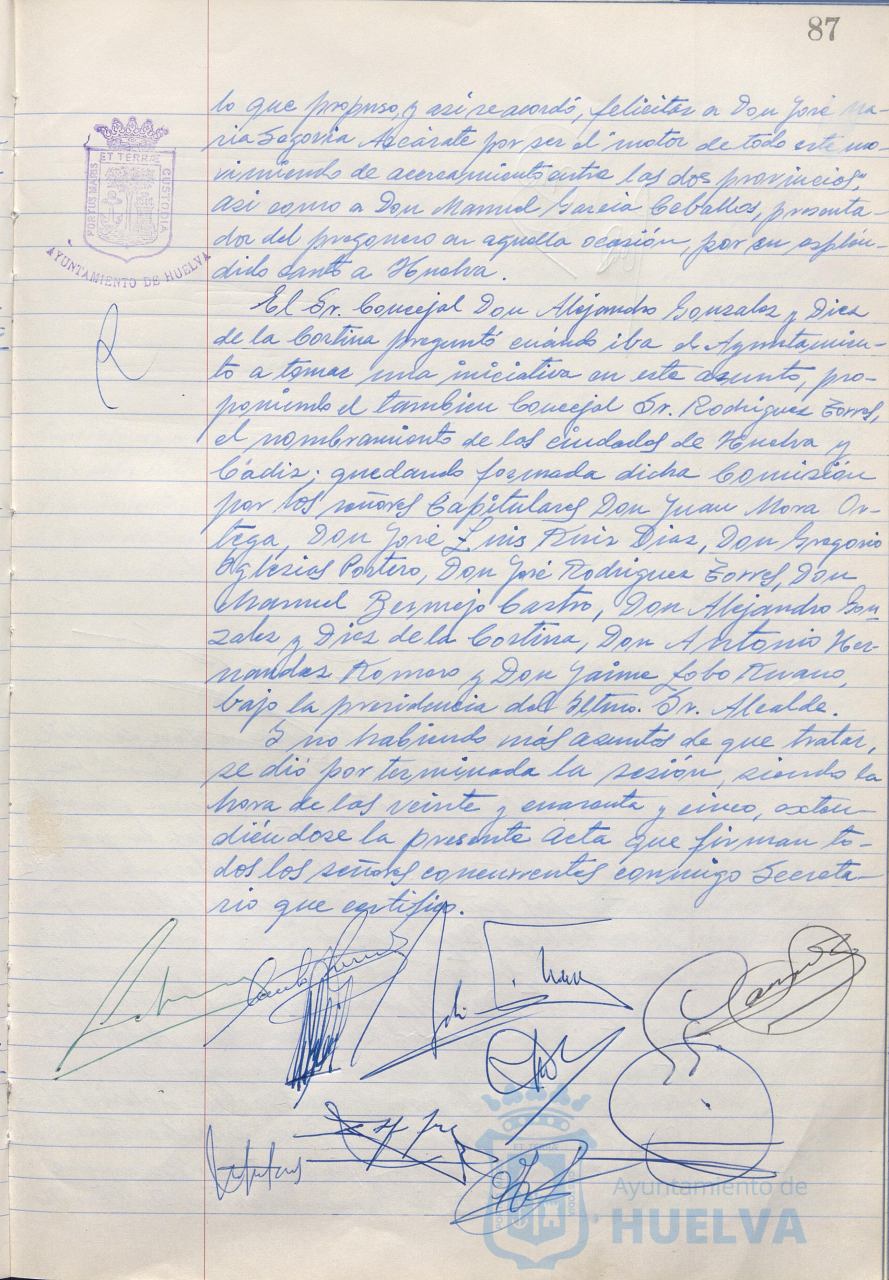 87
lo que propuso, y así se acordó, felicitar a Don José Ma-
ria Segovia Azcárate por ser el "motor de todo este mo-
vimiendo de acercamiento entre las dos provincias",
así como a Don Manuel García Ceballos, presenta-
dor del pregonero en aquella ocasión, por su esplén-
dido canto a Huelva.
El Sr. Concejal Don Alejandro Gonzalez y Diez
de la Cortina preguntó cuándo iba el Ayuntamien-
to a tomar una iniciativa en este asunto, pro-
poniendo el tambien Concejal Sr. Rodriguez Torres,
el nombramiento de las ciudades de Huelva y
Cádiz; quedando formada dicha Comisión
por los señores Capitulares Don Juan Mora Or-
tega, Don José Luis Ruiz Diaz, Don Gregorio
Iglesias Portero, Don José Rodriguez Torres, Don
Manuel Bermejo Castro, Don Alejandro Gon-
zalez y Diez de la Cortina, Don Antonio Her-
nandez Romero y Don Jaime Lobo Ruano,
bajo la presidencia del Iltmo. Sr. Alcalde.
Y no habiendo más asuntos de que tratar,
se dió por terminada la sesión, siendo la
hora de las veinte y cuarenta y cinco, exten-
diéndose la presente Acta que firman to-
dos los señores concurrentes conmigo Secreta-
rio que certifico.
PORTUS MARIS ET TERRAE CUSTODIA
AYUNTAMIENTO DE HUELVA
Ayuntamiento de
HUELVA